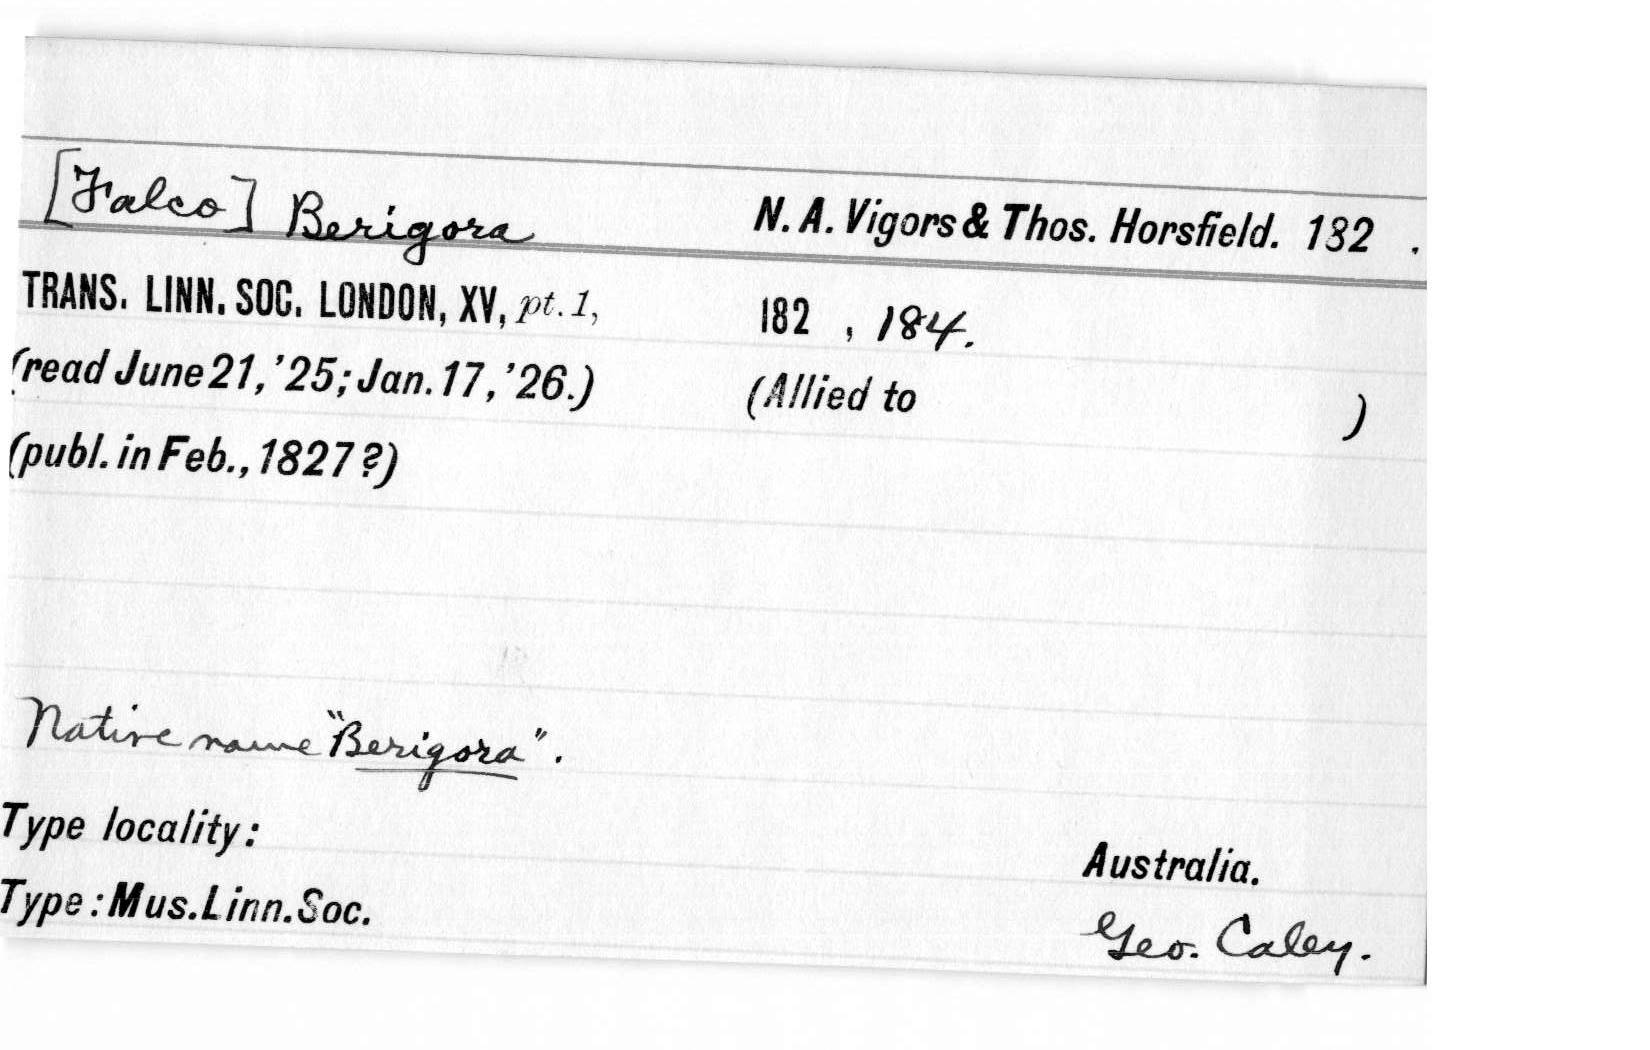 [Falco] Berigora N. A. Vigors & Thos. Horsfield. 182 .
TRANS. LINN. SOC. LONDON, XV, pt. 1, 182 , 184.
(read June 21, '25; Jan. 17, '26.) (Allied to )
(publ. in Feb., 1827 ?)
Native name "Berigora".
Type locality: Australia.
Type: Mus. Linn. Soc. Geo. Caley.